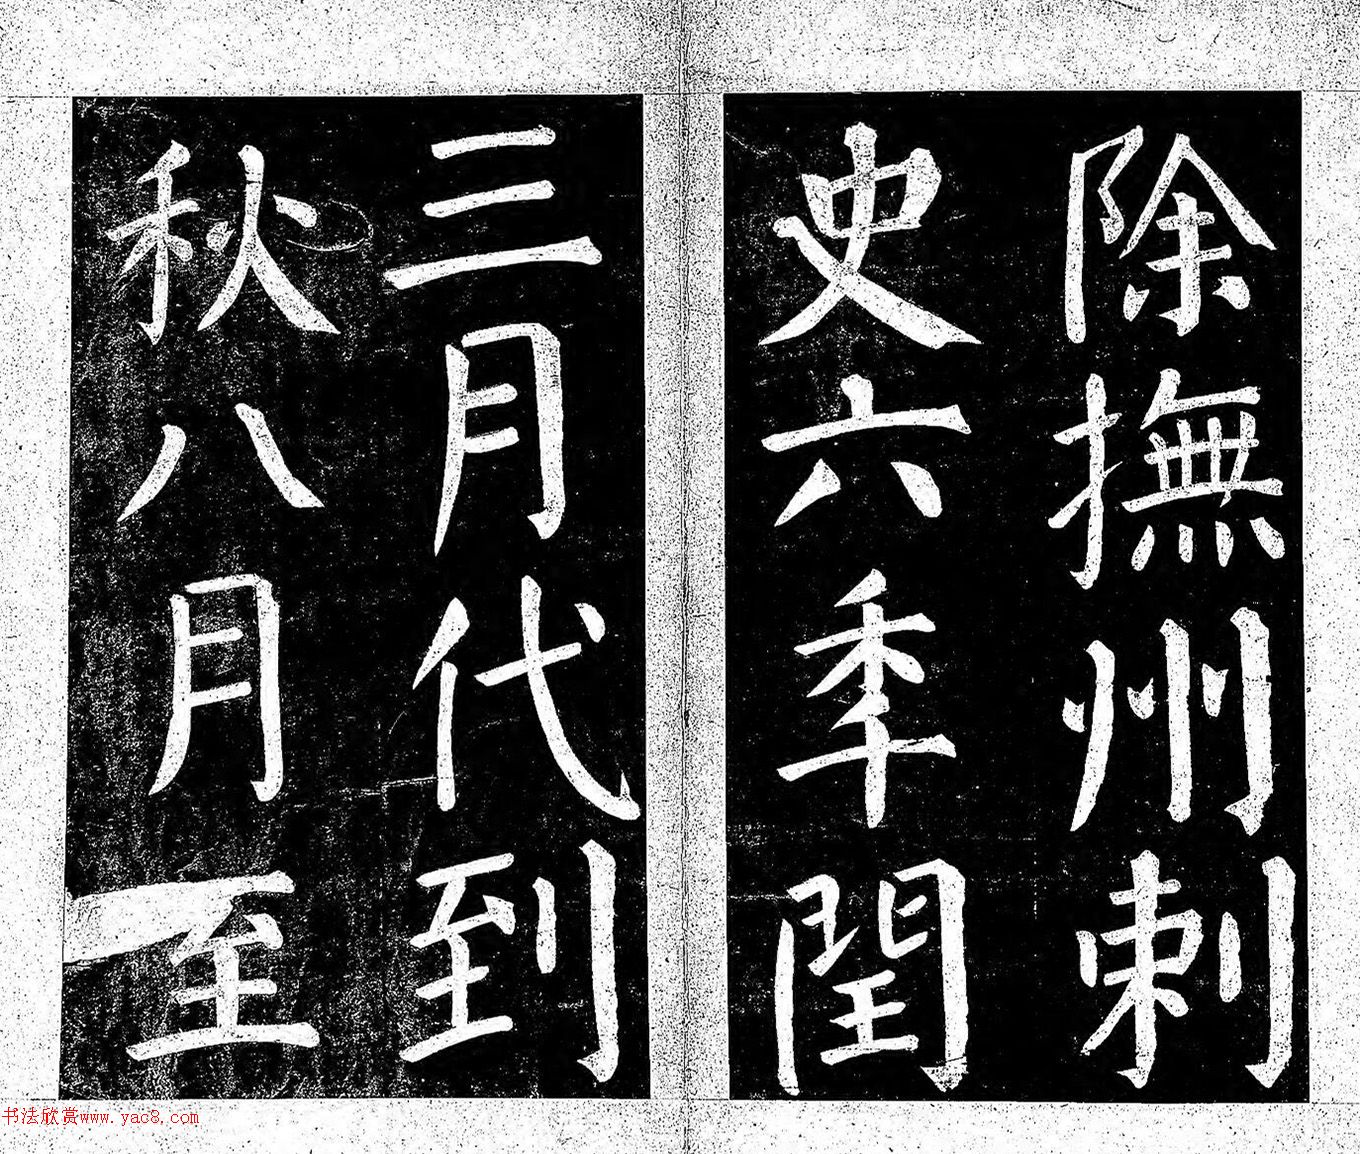 除撫州刺
史六年閏
三月代到
秋八月至
书法欣赏www.yac8.com